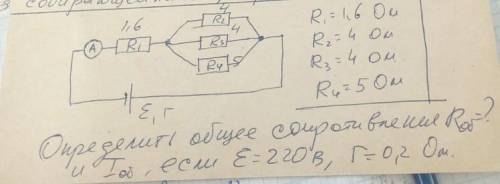 1,6
4
A
R₁
R₂
4
R₃
R₄
5
ε, г
R₁ = 1,6 Ом
R₂ = 4 Ом
R₃ = 4 Ом
R₄ = 5 Ом
Определить общее сопротивление Rоб = ?
и Iоб, если ε = 220 в, г = 0,2 Ом.